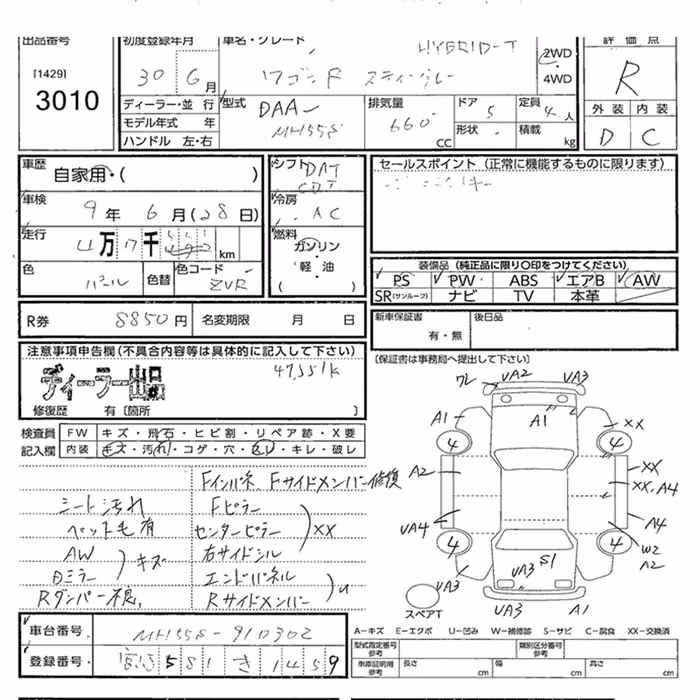 出品番号
[1429]
3010
初度登録年月
30 6月
車名・グレード
HYBRID-T
ワゴンR スティングレー
2WD
・
4WD
評価点
R
外装 内装
D C
ディーラー・並行
モデル年式 年
ハンドル 左・右
型式
DAA-
MH55S
排気量
660
CC
ドア
5
形状
定員
4人
積載
kg
車歴
自家用・( )
車検
9年 6月(28日)
走行
4万7千
km
色
パール
色替
色コード
ZVR
シフト
DAT
CDT
冷房
AC
燃料
ガソリン
・
軽・油
セールスポイント(正常に機能するものに限ります)
装備品(純正品に限り〇印をつけてください)
PS PW ABS エアB AW
SR(サンルーフ) ナビ TV 本革
R券
8850円
名変期限 月 日
新車保証書
有・無
後日品
(保証書は事務局へ提出して下さい)
注意事項申告欄(不具合内容等は具体的に記入して下さい)
47,551K
ディーラー出品
修復歴 有〔箇所 〕
検査員
記入欄
FW キズ・飛石・ヒビ割・リペア跡・X要
内装 キズ・汚れ・コゲ・穴・凹レ・キレ・破レ
Fインパネ、Fサイドメンバー修復
シート汚れ
Fピラー
ペット毛有
センターピラー
XX
AW
キズ
右サイドシル
ミラー
エンドパネル
Rダンパー不良
Rサイドメンバー
ワレ VA2 VA3
A1 A1 XX
4 4
A2 XX
XX,A4
VA4 A4
4 4
W2
A2
VA3 VA3 S1
VA3 A1
スペアT
車台番号
MH55S-910302
登録番号
581 き 1459
A―キズ E―エクボ U―凹み W―補修跡 S―サビ C―腐食 XX―交換済
型式指定番号
参考
類別区分番号
参考
車庫証明用
参考
長さ cm
幅 cm
高さ cm